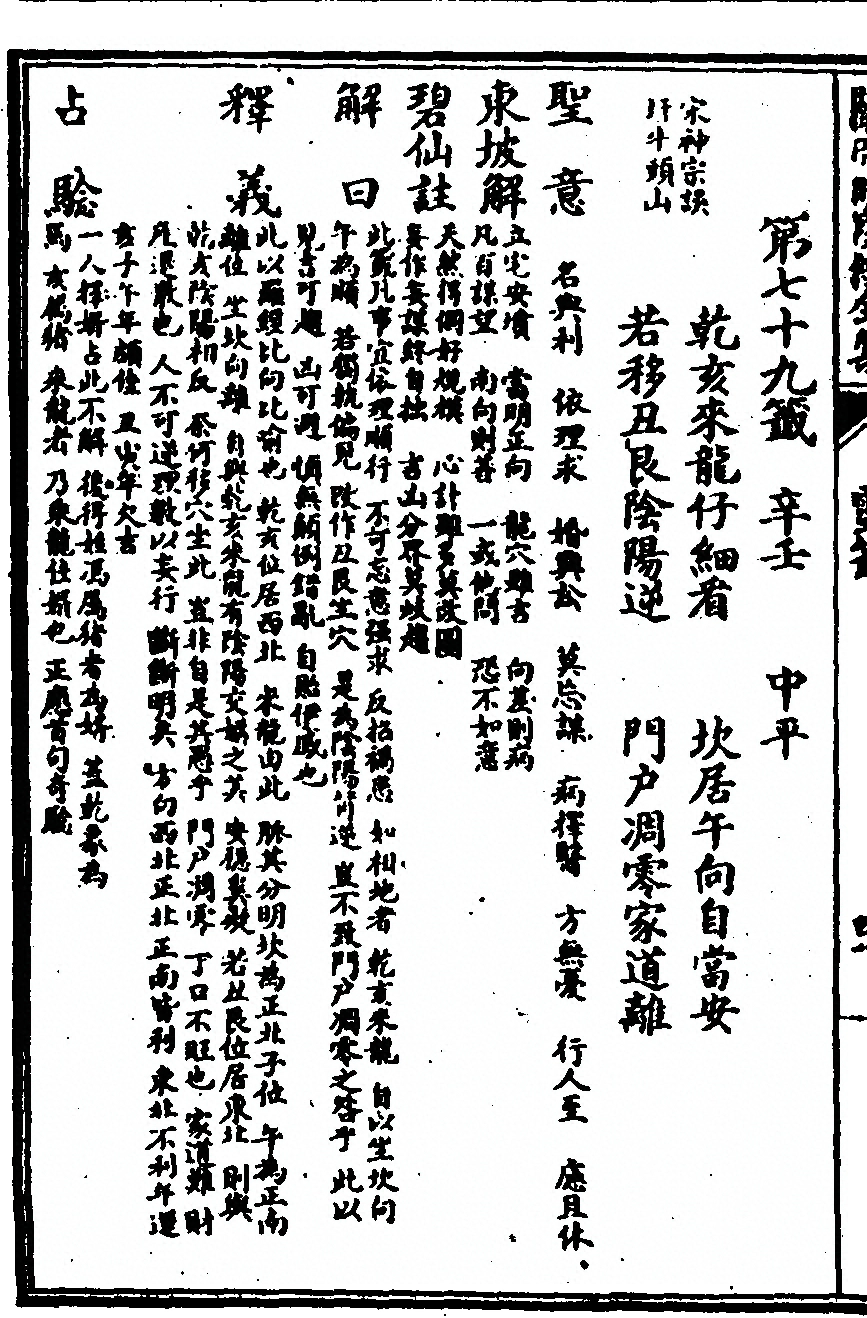 第七十九籤　辛壬　中平
宋神宗誤
扦牛頭山
乾亥來龍仔細看　坎居午向自當安
若移丑艮陰陽逆　門戶凋零家道離
聖意　名與利　依理求　婚與訟　莫忘謀　病擇醫　方無憂　行人至　應且休
東坡解　立宅安墳　當明正向　龍穴雖吉　向差則病
凡百謀望　南向則善　一或他問　恐不如意
碧仙註　天然得個好規模　心計雖多莫改圖
妄作妄謀終自拙　吉凶分界莫歧趨
解曰　此籤凡事宜依理順行　不可忘意强求　反招禍患　如相地者　乾亥來龍　自以坐坎向
午為順　若獨執偏見　改作丑艮坐穴　是為陰陽背逆　豈不致門戶凋零之咎乎　此以
見吉可趨　凶可避　慎無顛倒錯亂　自貽伊慼也
釋義　此以羅經比向比喻也　乾亥位居西北　來龍由此　脈其分明坎為正北子位　午為正南
離位　坐坎向離　自與乾亥來龍有陰陽交媾之美　安穩奚疑　若丑艮位居東北　則與
乾亥陰陽相反　奈何移穴坐此　豈非自是其愚乎　門戶凋零　丁口不旺也　家道離　財
產退敗也　人不可逆理數以妄行　斷斷明矣　方向西北正北正南皆利　東北不利年運
亥子午年頗佳　丑寅年欠吉
占驗　一人擇婿占此不解　後得姓馮屬猪者為婿　蓋乾象為
馬　亥屬猪　來龍者　乃乘龍佳婿也　正應首句奇驗